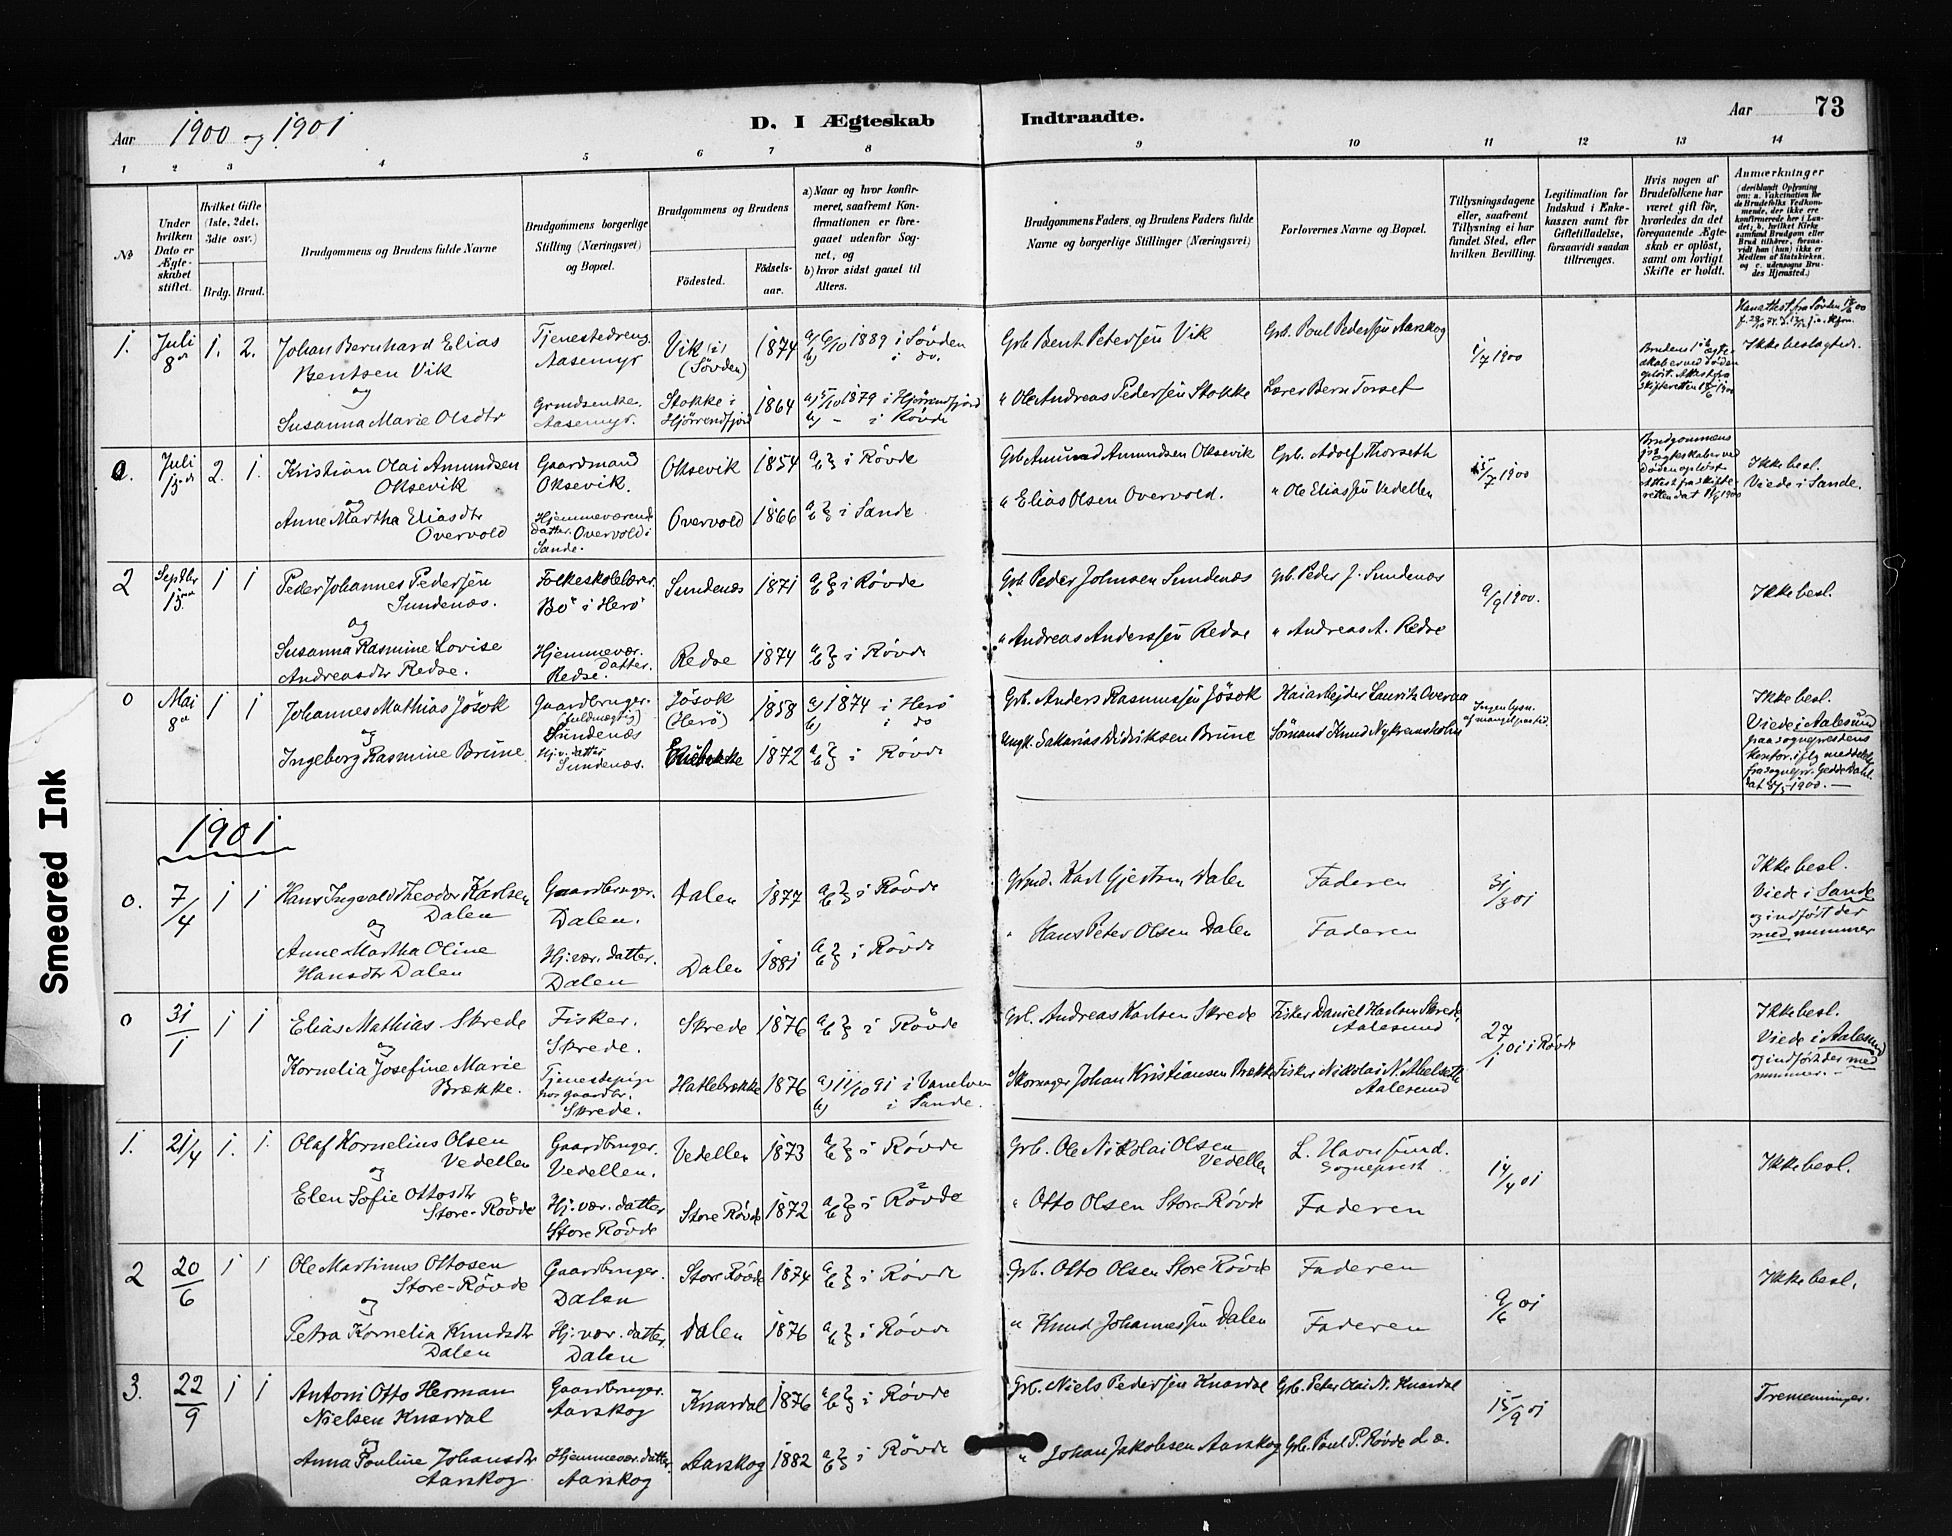 Aar 1900 og 1901
D. I Ægteskab Indtraadte.
Aar
73
1 2 3 4 5 6 7 8 9 10 11 12 13 14
№
Under hvilken Dato er Ægteskabet stiftet.
Hvilket Gifte (1ste, 2det, 3die osv.)
Brdg. Brud.
Brudgommens og Brudens fulde Navne
Brudgommens borgerlige Stilling (Næringsvei) og Bopæl.
Brudgommens og Brudens
Fødested.
Fødselsaar.
a) Naar og hvor konfirmeret, saafremt Konfirmationen er foregaaet udenfor Sognet, og
b) hvor sidst gaaet til Alters.
Brudgommens Faders og Brudens Faders fulde Navne og borgerlige Stillinger (Næringsvei)
Forlovernes Navne og Bopæl.
Tillysningsdagene eller, saafremt Tillysning ei har fundet Sted, efter hvilken Bevilling.
Legitimation for Indskud i Enkekassen samt for Giftetilladelse, forsaavidt saadan tiltrænges.
Hvis nogen af Brudefolkene har været gift før, hvorledes da det foregaaende Ægteskab er opløst, samt om lovligt Skifte er holdt.
Anmærkninger
1. Juli 8de 1. 2. Johan Bernhard Elias Bentsen Vik
og
Susanna Marie Olsdtr
Tjenestedreng Aasemyr
Grndsenke. Aasemyr.
Vik (i) (Søvden) 1874 a) 6/10 1889 i Søvden b) i do.
Stokke i Hjørrendfjord 1864 a) 5/10 1879 i Hjørrendfjord b) - i Røvde
Grb. Bent Petersen Vik
" Ole Andreas Pedersen Stokke
Grb. Poul Pedersen Aarskog
Lærer Bern Torset
1/7 1900
Ikke beslægtede.
0. Juli 15de 2. 1. Kristian Olai Amundsen Oksevik
og
Anne Martha Eliasdtr Overvold
Gaardmand Oksevik.
Hjemmeværende datter. Overvold i Sande.
Oksevik 1854 a b } i Røvde
Overvold 1866 a b } i Sande
Grb. Amund Amundsen Oksevik
" Elias Olsen Overvold.
Grb. Adolf Thorseth
" Ole Eliassen Vedellen
15/7 1900
Ikke besl. Viede i Sande.
2 Septbr 15de 1 1 Peder Johannes Pedersen Sundenæs.
og
Susanna Rasmine Lovise Andreasdtr Redse.
Folkeskolelærer. Bø i Herø
Hjemmevær. datter. Redse.
Sundenæs 1871 a b } i Røvde
Redse 1874 a b } i Røvde
Grb. Peder Johnsen Sundenæs
" Andreas Anderssen Redse
Grb. Peder J. Sundenæs
" Andreas A. Redse
9/9 1900.
Ikke besl.
0 Mai 8de 1 1 Johannes Mathias Jøsok
og
Ingeborg Rasmine Brune
Gaardbruger. (fuldmægtig) Sundenæs
Hjv. datter Sundenæs.
Jøsok (Herø) 1858 a) 1874 i Herø b) i do
1872 a b } i Røvde
Grb. Anders Rasmussen Jøsok
Ungk. Sakarias Didriksen Brune
Havarbejder Lauritz Overaa
Sømand Knud
Ingen lysn. af mangel paa tid.
Ikke besl. Viede i Aalesund
1901
0. 7/4 1 1 Hans Ingvald Theodor Karlsen Dalen
og
Anne Martha Oline Hansdtr Dalen
Gaardbruger. Dalen.
Hj. vær. datter. Dalen
Dalen 1877 a b } i Røvde
Dalen 1881 a b } i Røvde
Grmd. Karl Gjertsen Dalen
" Hans Peter Olsen Dalen
Faderen
Faderen
31/3 01
Ikke besl. Viede i Sande og indført der med nummer
0 31/1 1 1 Elias Mathias Skrede
og
Kornelia Josefine Marie Brække.
Fisker. Skrede.
Tjenestepige hos gaardbr. Skrede.
Skrede 1876 a b } i Røvde
Hatlebrække 1876 a) 11/10 91 i Vanelven b) i Sande.
Grb. Andreas Karlsen Skrede
Skomager Johan Kristiansen Brekke
Fisker Daniel Karlsen Skrede, Aalesund
Fisker Nikolai N. Abelseth Aalesund
27/1 01 i Røvde
Ikke besl. Viede i Aalesund og indført der med nummer.
1. 21/4 1. 1. Olaf Kornelius Olsen Vedellen
og
Elen Sofie Ottosdtr Store-Røvde
Gaardbruger. Vedellen.
Hj. vær. datter Store Røvde
Vedellen 1873 a b } i Røvde
Store Røvde 1872 a b } i Røvde
Grb. Ole Nikolai Olsen Vedellen
" Otto Olsen Store-Røvde
L. Havnsund. Sogneprest
Faderen
14/4 01
Ikke besl.
2 20/6 1 1 Ole Martinus Ottosen Store-Røvde
og
Petra Kornelia Knudsdtr Dalen
Gaardbruger. Dalen
Hj. vær. datter. Dalen
Store Røvde 1874 a b } i Røvde
Dalen 1876 a b } i Røvde
Grb. Otto Olsen Store Røvde
" Knud Johannessen Dalen
Faderen
Faderen
9/6 01
Ikke besl.
3. 22/9 1 1 Antoni Otto Herman Nielsen Knardal
og
Anna Pouline Johansdtr Aarskog
Gaardbruger. Aarskog
Hjemmevær. datter. Aarskog
Knardal 1876 a b } i Røvde
Aarskog 1882 a b } i Røvde
Grb. Niels Pedersen Knardal
" Johan Jakobsen Aarskog
Grb. Peter Olai N. Knardal
Grb. Poul P. Røvde d. æ.
15/9 01
Tremenninger.
Smeared Ink